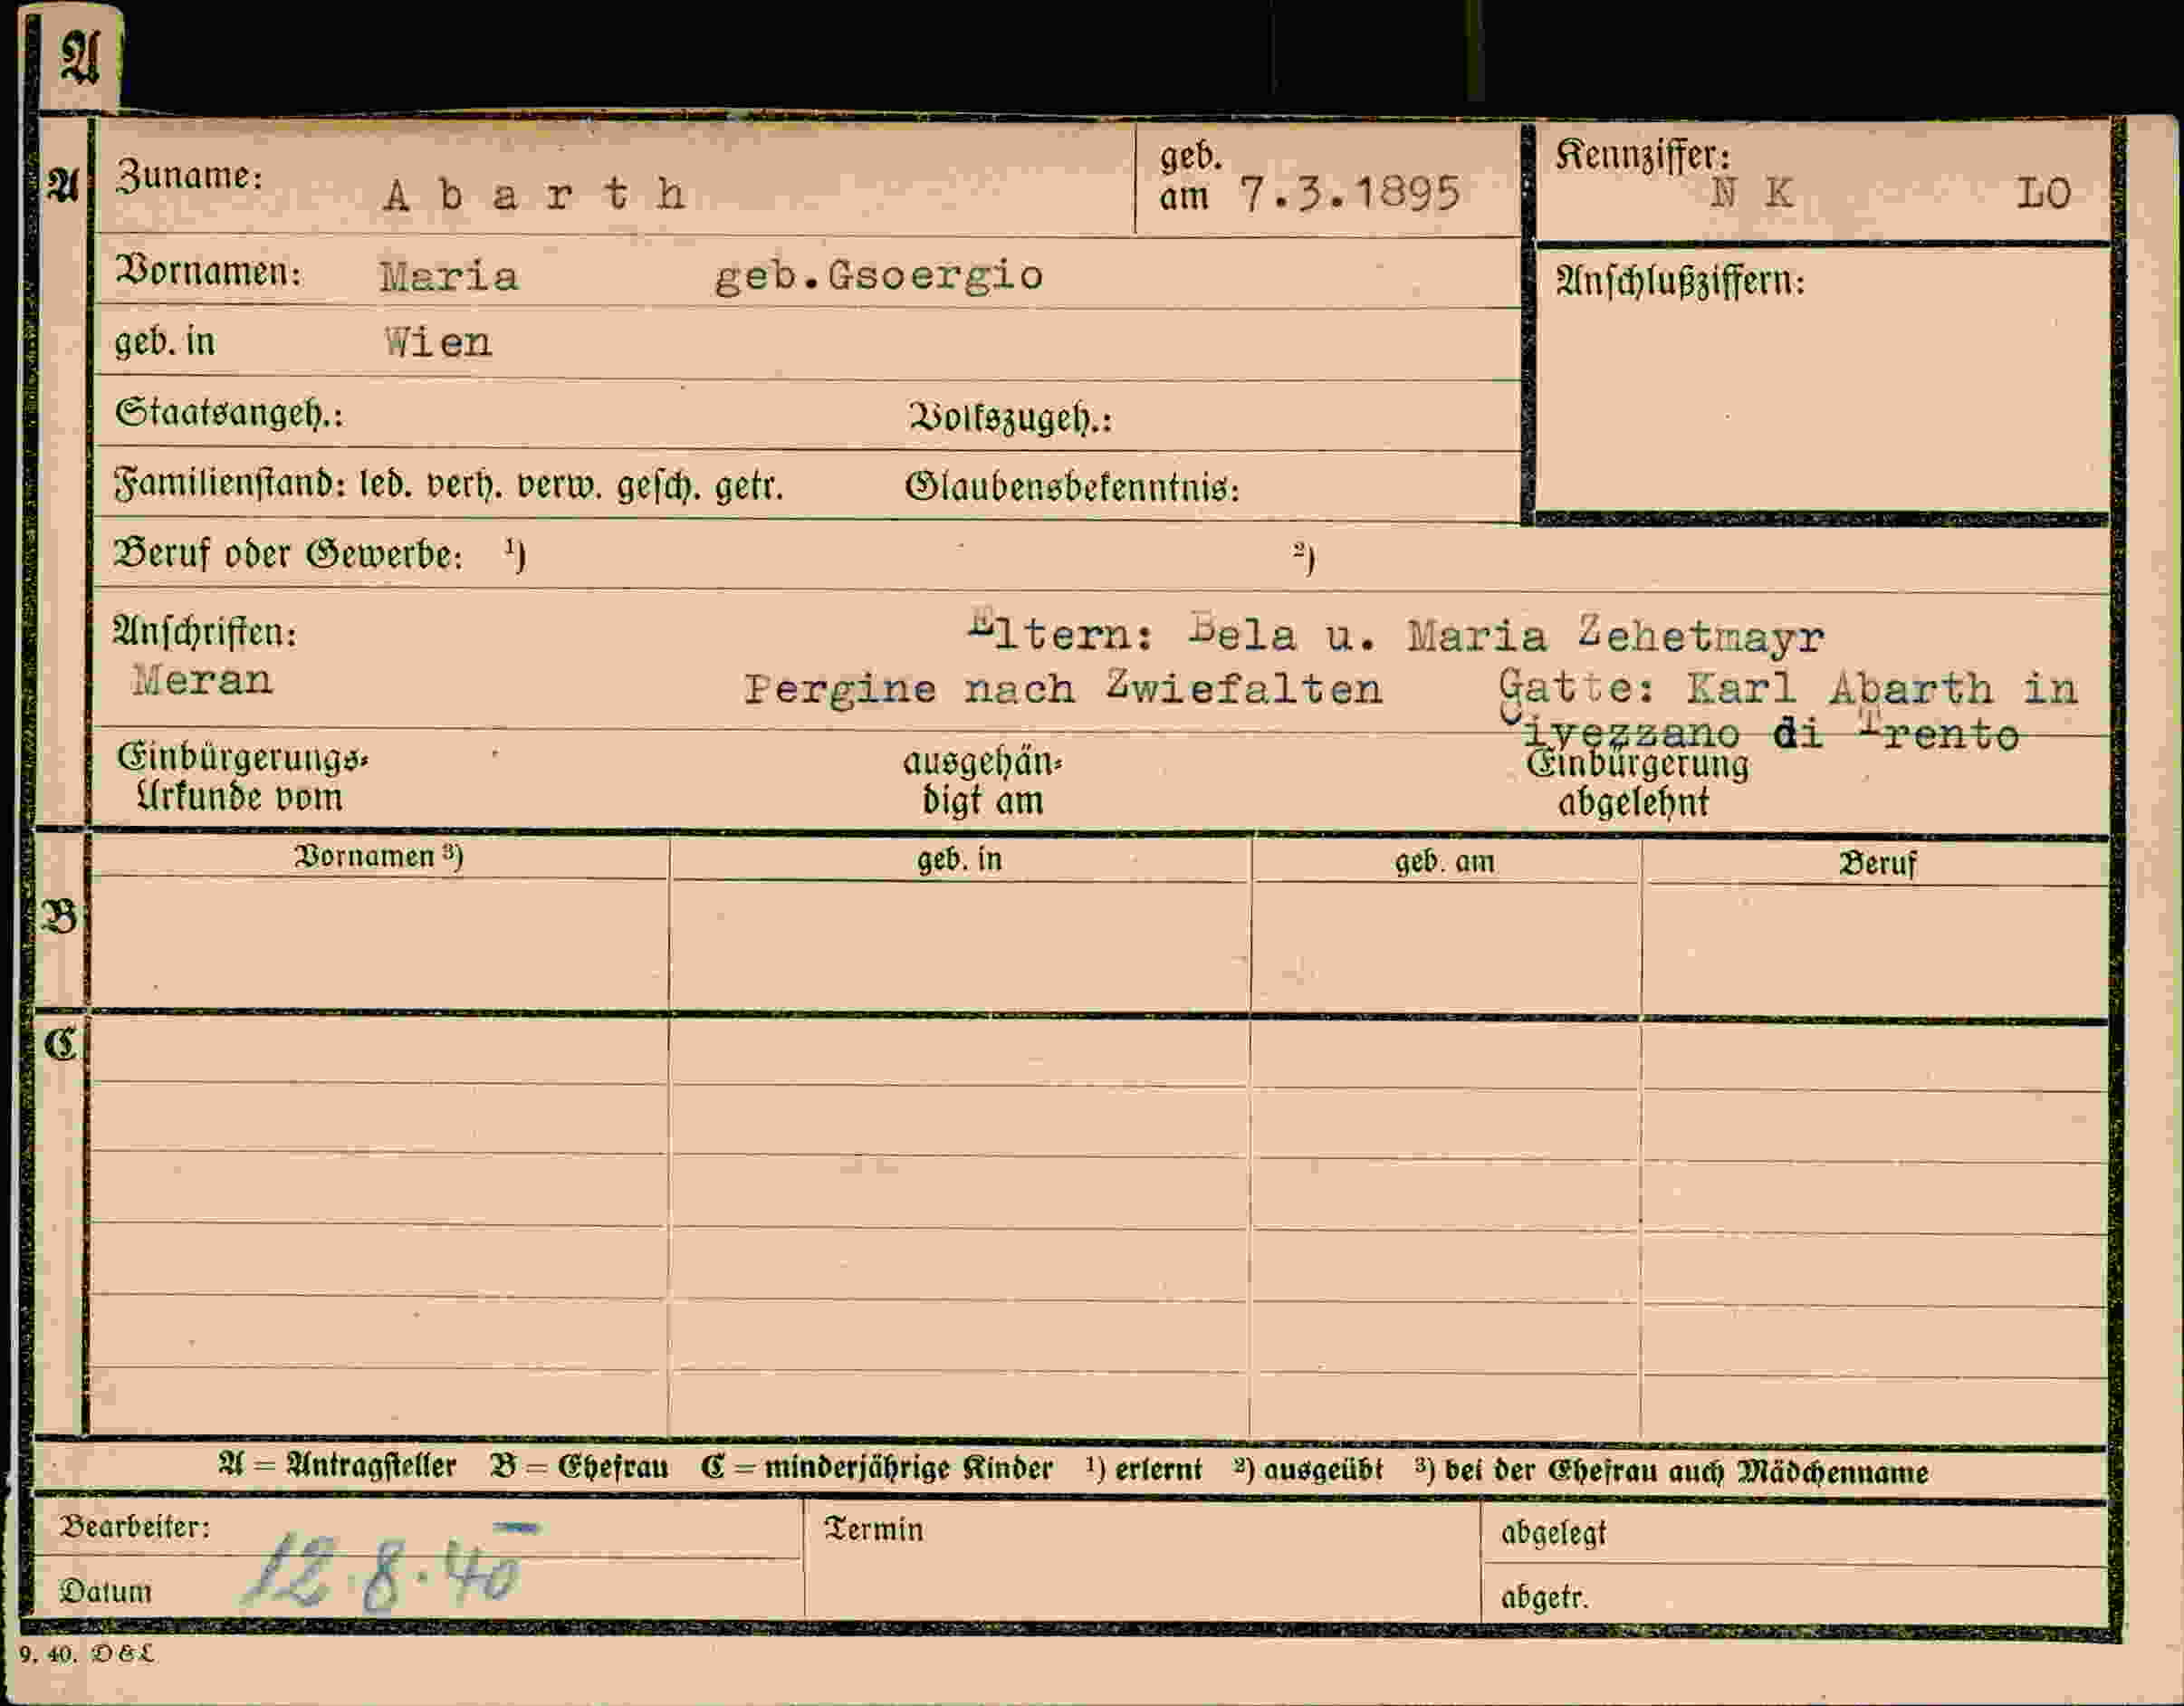 A
A Zuname: Abarth geb. am 7.3.1895 Kennziffer: N K LO
Vornamen: Maria geb.Gsoergio Anschlußziffern:
geb. in Wien
Staatsangeh.: Volkszugeh.:
Familienstand: led. verh. verw. gesch. getr. Glaubensbekenntnis:
Beruf oder Gewerbe: ¹) ²)
Anschriften: Eltern: Bela u. Maria Zehetmayr
Meran Pergine nach Zwiefalten Gatte: Karl Abarth in
Civezzano di Trento
Einbürgerungs- ausgehän- Einbürgerung
Urkunde vom digt am abgelehnt
Vornamen ³) geb. in geb. am Beruf
B
C
A = Antragsteller B = Ehefrau C = minderjährige Kinder ¹) erlernt ²) ausgeübt ³) bei der Ehefrau auch Mädchenname
Bearbeiter: Termin abgelegt
Datum 12.8.40 abgetr.
9. 40. D & L